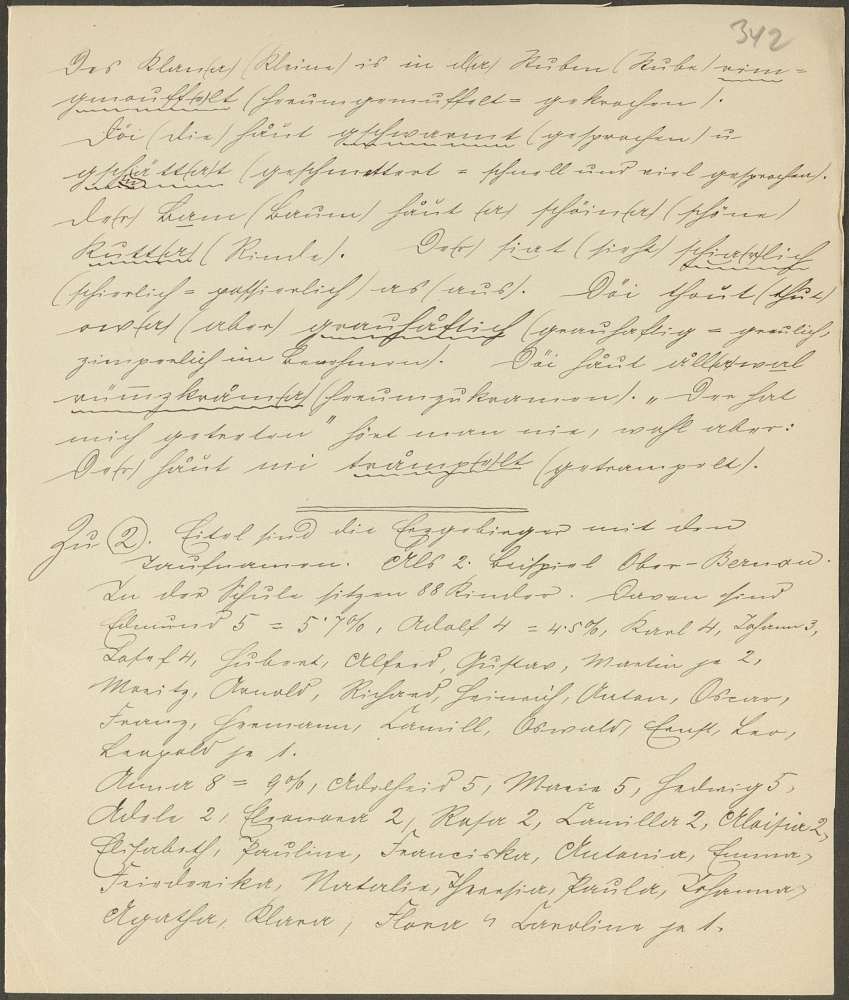 342
Des Klan(a) (Kleine) is in da(r) Stuben (Stube) rim=
gmouff(e)lt (herumgemuffelt = gekrochen).
Döi (die) håut gschwarmt (gesprochen) u
gschått(a)t (geschnattert = schnell und viel gesprochen).
De(r) Bam (Baum) håut (a) schöin(a) (schöne)
Rutt(a) (Rinde). De(r) siat (sieht) schia(r)lich
(schierlich = possierlich) as (aus). Döi thout (thut)
ow(a) (aber) grauhåftich (grauhaftig = greulich,
zimperlich im Benehmen). Döi håut åll(a)wal
rümzkråm(a) (herumzukramen). „Der hat
mich getreten" hört man nie, wohl aber:
De(r) håut mi tråmp(e)lt (getrampelt).
Zu 2. Eitel sind die Erzgebirger mit den
Taufnamen. Als 2. Beispiel Ober-Bernau.
In der Schule sitzen 88 Kinder. Davon sind
Edmund 5 = 5·7%, Adolf 4 = 4·5%, Karl 4, Johann 3,
Josef 4, Hubert, Alfred, Gustav, Martin je 2,
Moritz, Arnold, Richard, Heinrich, Anton, Oscar,
Franz, Hermann, Camill, Oswald, Ernst, Leo,
Leopold je 1.
Anna 8 = 9%, Adelheid 5, Marie 5, Hedwig 5,
Adele 2, Eleonora 2, Rosa 2, Camilla 2, Aloisia 2,
Elisabeth, Pauline, Franciska, Antonia, Emma,
Friederika, Natalie, Theresia, Paula, Johanna,
Agatha, Klara, Flora u Caroline je 1.